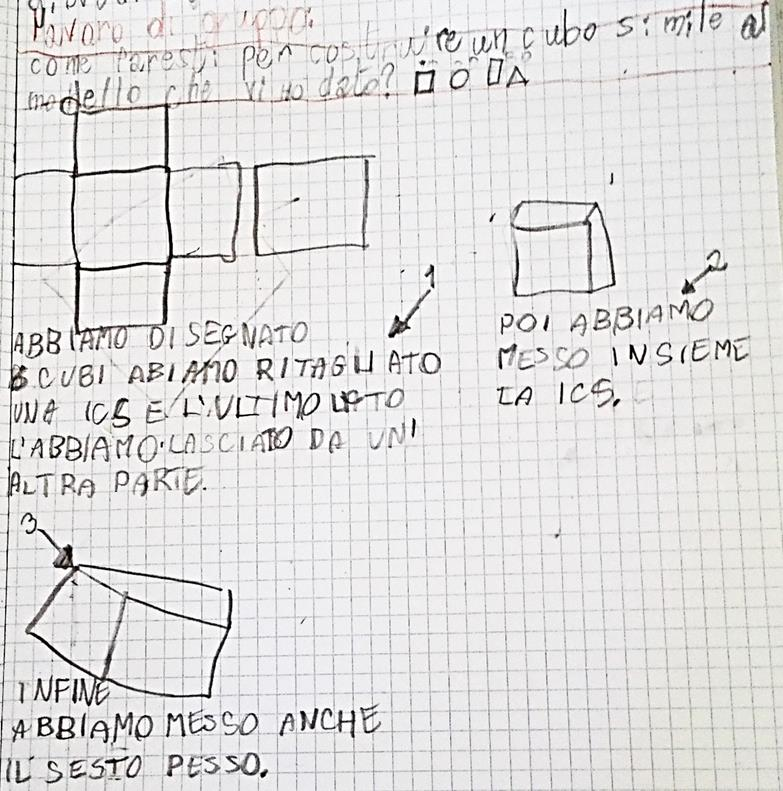 Lavoro di gruppo:
come faresti per costruire un cubo simile al
modello che vi ho dato?
1
ABBIAMO DISEGNATO
6 CUBI ABIAMO RITAGLIATO
UNA ICS E L'ULTIMO LATO
L'ABBIAMO LASCIATO DA UN'
ALTRA PARTE.
2
POI ABBIAMO
MESSO INSIEME
LA ICS.
3
INFINE
ABBIAMO MESSO ANCHE
IL SESTO PESSO.